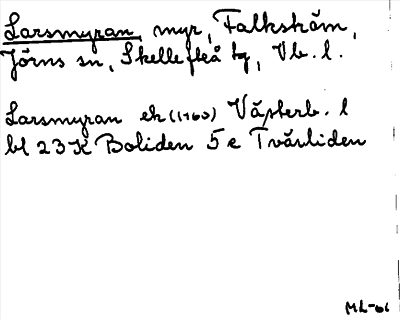 Larsmyran, myr, Falkshåm,
Jörns sn, Skellefteå tg, Vb. l.
Larsmyran ek (1963) Västerb. l
bl 23K Boliden 5e Tvärliden
ML-61